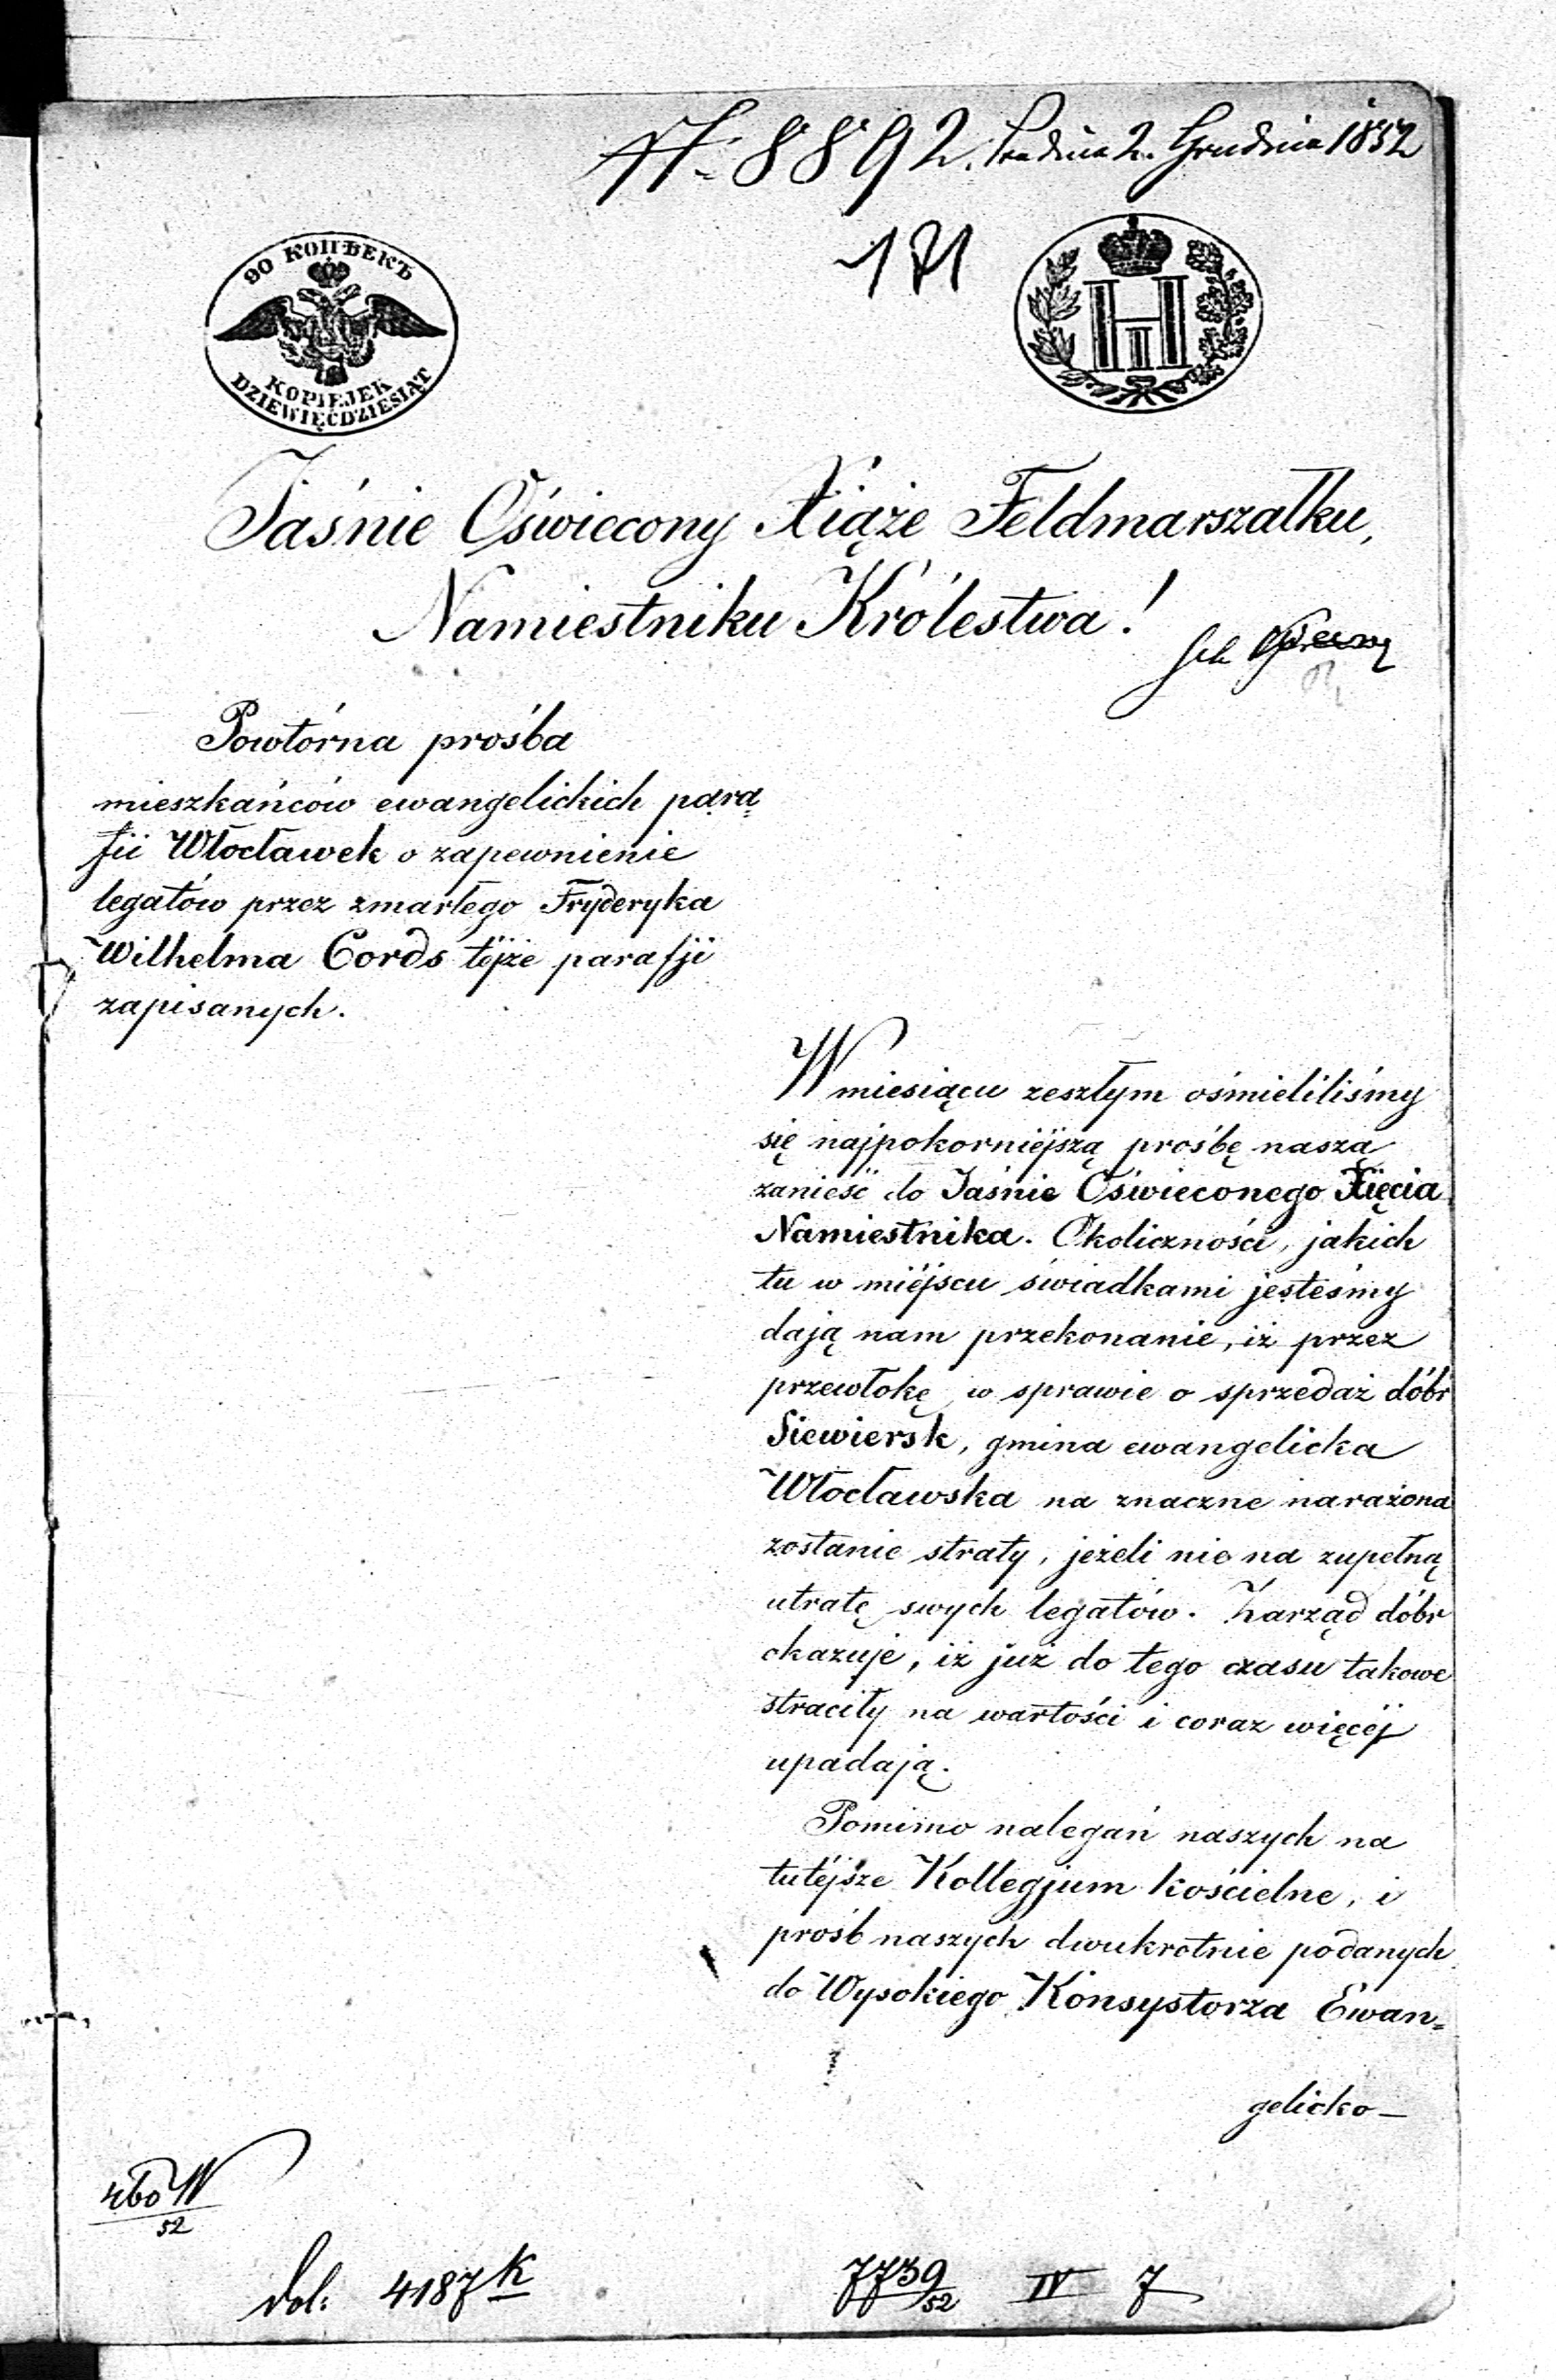 № 8892. dnia 2. Grudnia 1852
171
90 КОПѢЕКЪ
KOPIEJEK
DZIEWIĘĆDZIESIĄT
Jaśnie Oświecony Xiąże Feldmarszałku,
Namiestniku Królestwa!
Powtórna prośba
mieszkańców ewangelickich para=
fii Włocławek o zapewnienie
legatów przez zmarłego Fryderyka
Wilhelma Cords tejże parafji
zapisanych.
W miesiącu zeszłym ośmieliliśmy
się najpokorniéjszą prośbę naszą
zanieść do Jaśnie Oświeconego Xięcia
Namiestnika. Okoliczności, jakich
tu w miéjscu świadkami jesteśmy
dają nam przekonanie, iż przez
przewłokę w sprawie o sprzedaż dóbr
Siewiersk, gmina ewangelicka
Włocławska na znaczne narażona
zostanie straty, jeżeli nie na zupełną
utratę swych legatów. Zarząd dóbr
okazuje, iż już do tego czasu takowe
straciły na wartości i coraz więcéj
upadają.
Pomimo nalegań naszych na
tutéjsze Kollegjum kościelne, i
prośb naszych dwukrotnie podanych
do Wysokiego Konsystorza Ewan=
gelicko-
460 W
52
dol: 4187 K
7739/52 IV 7